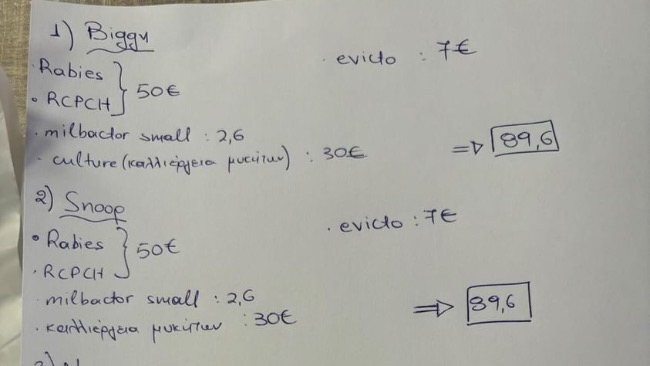 1) Biggy
· Rabies } 50€
· RCPCH
· evicto : 7€
· milbactor small : 2,6
· culture (καλλιέργεια μυκήτων) : 30€
=> 89,6
2) Snoop
· Rabies } 50€
· RCPCH
· evicto : 7€
· milbactor small : 2,6
· καλλιέργεια μυκήτων : 30€
=> 89,6